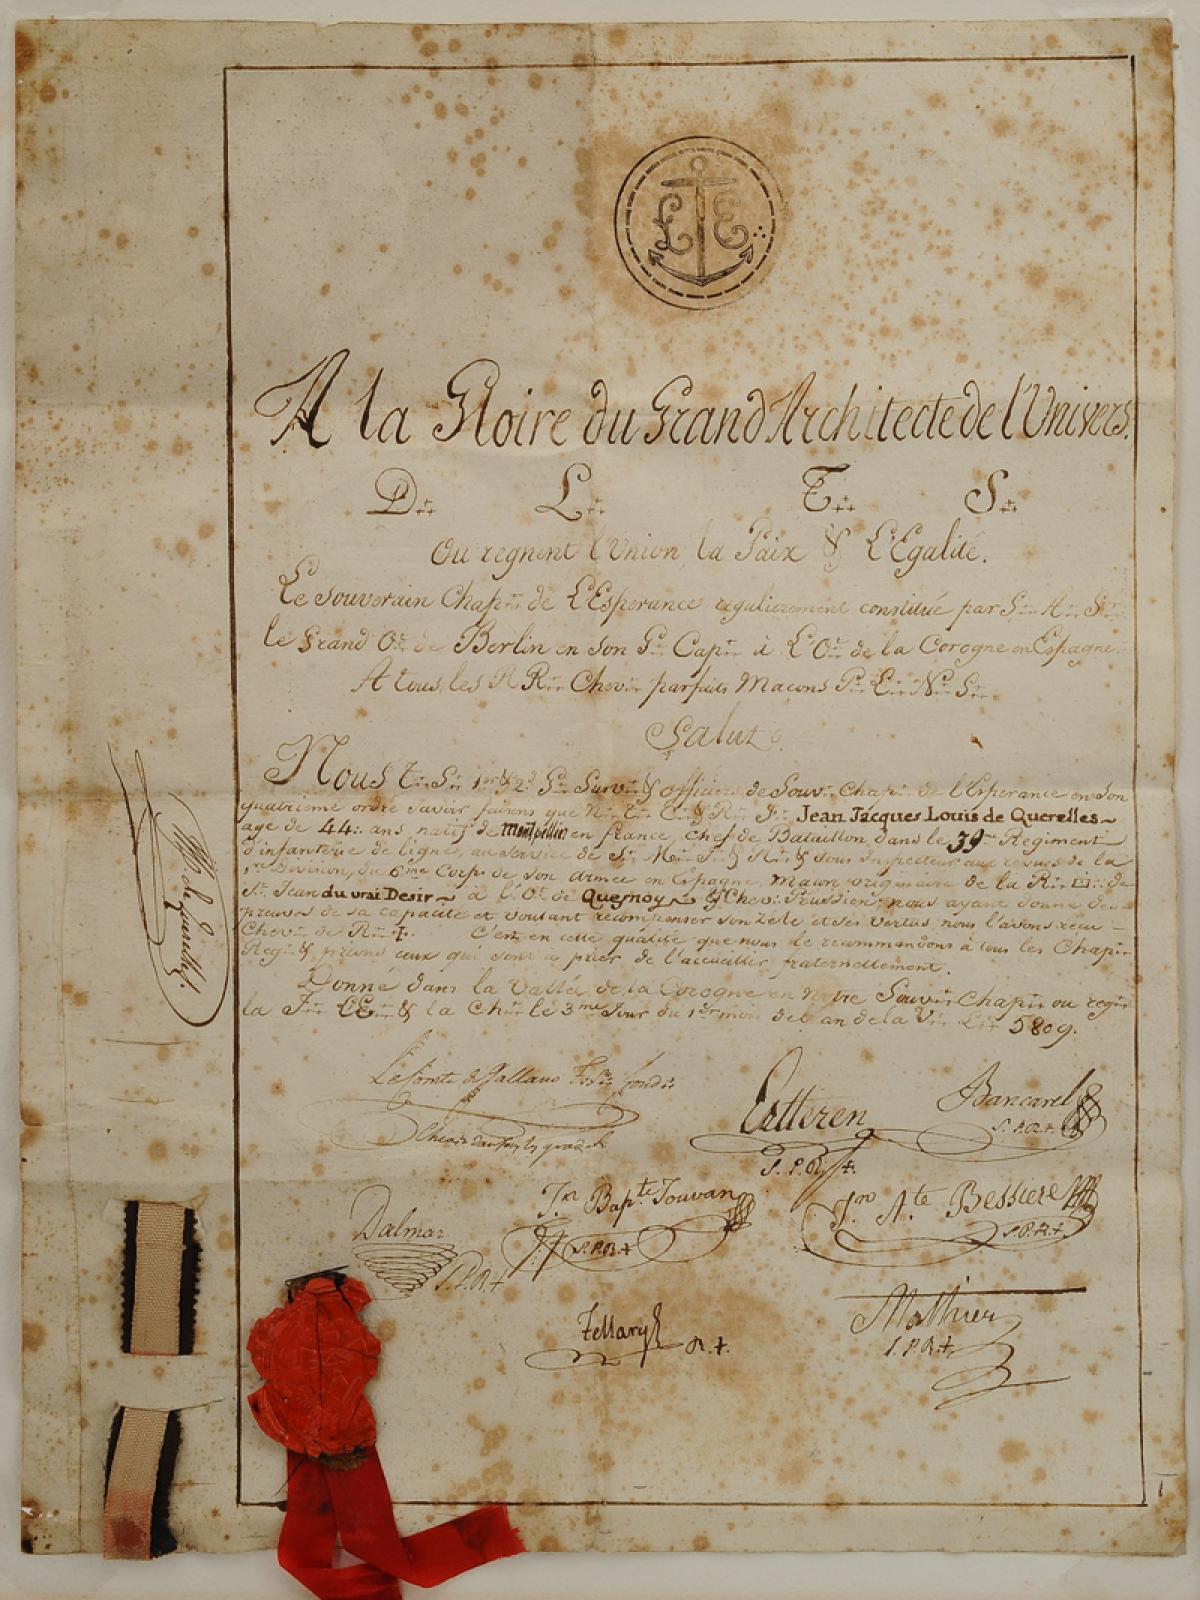 L E
A la Gloire du Grand Architecte de l'Univers.
D∴ L∴ T∴ S∴
Ou regnent l'Union, la Paix & L'Egalité.
Le souverain Chap∴ de L'Esperance regulierement constitué par S∴ A∴ S∴
le Grand O∴ de Berlin en son G∴ Cap∴ à L'O∴ de la Corogne en Espagne.
A tous les R R∴ Chev∴ parfaits Macons P∴ L∴ N∴ S∴
Salut
Nous T∴ S∴ 1er & 2d G∴ Surv∴ & officiers de Souv∴ Chap∴ de l'Esperance en son
quatrieme ordre savoir faisons que N∴ T∴ C∴ & R∴ F∴ Jean Jacques Louis de Querelles~
age de 44∴ ans, natif de montpellier en france Chef de Bataillon dans le 39me Regiment
d'infanterie de ligne, au service de S∴ M∴ I∴ & R∴ & sous Inspecteur aux revues de la
1re Division, du 6me Corps de son Armée en Espagne, Macon originaire de la R∴ □∴ de
St. Jean du vrai Desir~ à l'O∴ de Quesnoy~ & Chev∴ Prussien; nous ayant donné des
preuves de sa capacité et voulant recompenser son zele et ses vertus, nous l'avons recu
Chev∴ de R∴ ✝. C'est en cette qualité que nous le recommandons à tous les Chap∴
Reg∴ & prions ceux qui sont a prier de l'accueillir fraternellement.
Donné dans la Vallée de la Corogne en Notre Souv∴ Chap∴ ou regn∴
la F∴ L'E∴ & la Ch∴ le 3me Jour du 1er mois de l an de la V∴ L∴ 5809.
Le Comte de
Catteren
S.P.R.✝.
Bancarel
S.P.R.✝.
Dalmar
S.P.R.✝
Jn Bapte Jouvan
S.P.R.✝
Jn Ate Bessiere
S.P.R.✝.
R.✝.
Mathier
S.P.R.✝.
de Querelles.